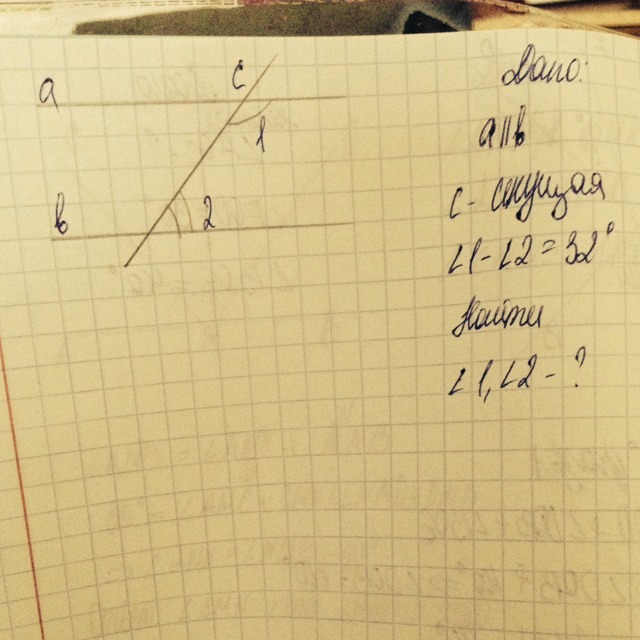 a
c
1
в
2
Дано:
a||b
c - секущая
∠1-∠2=32°
Найти
∠1,∠2-?